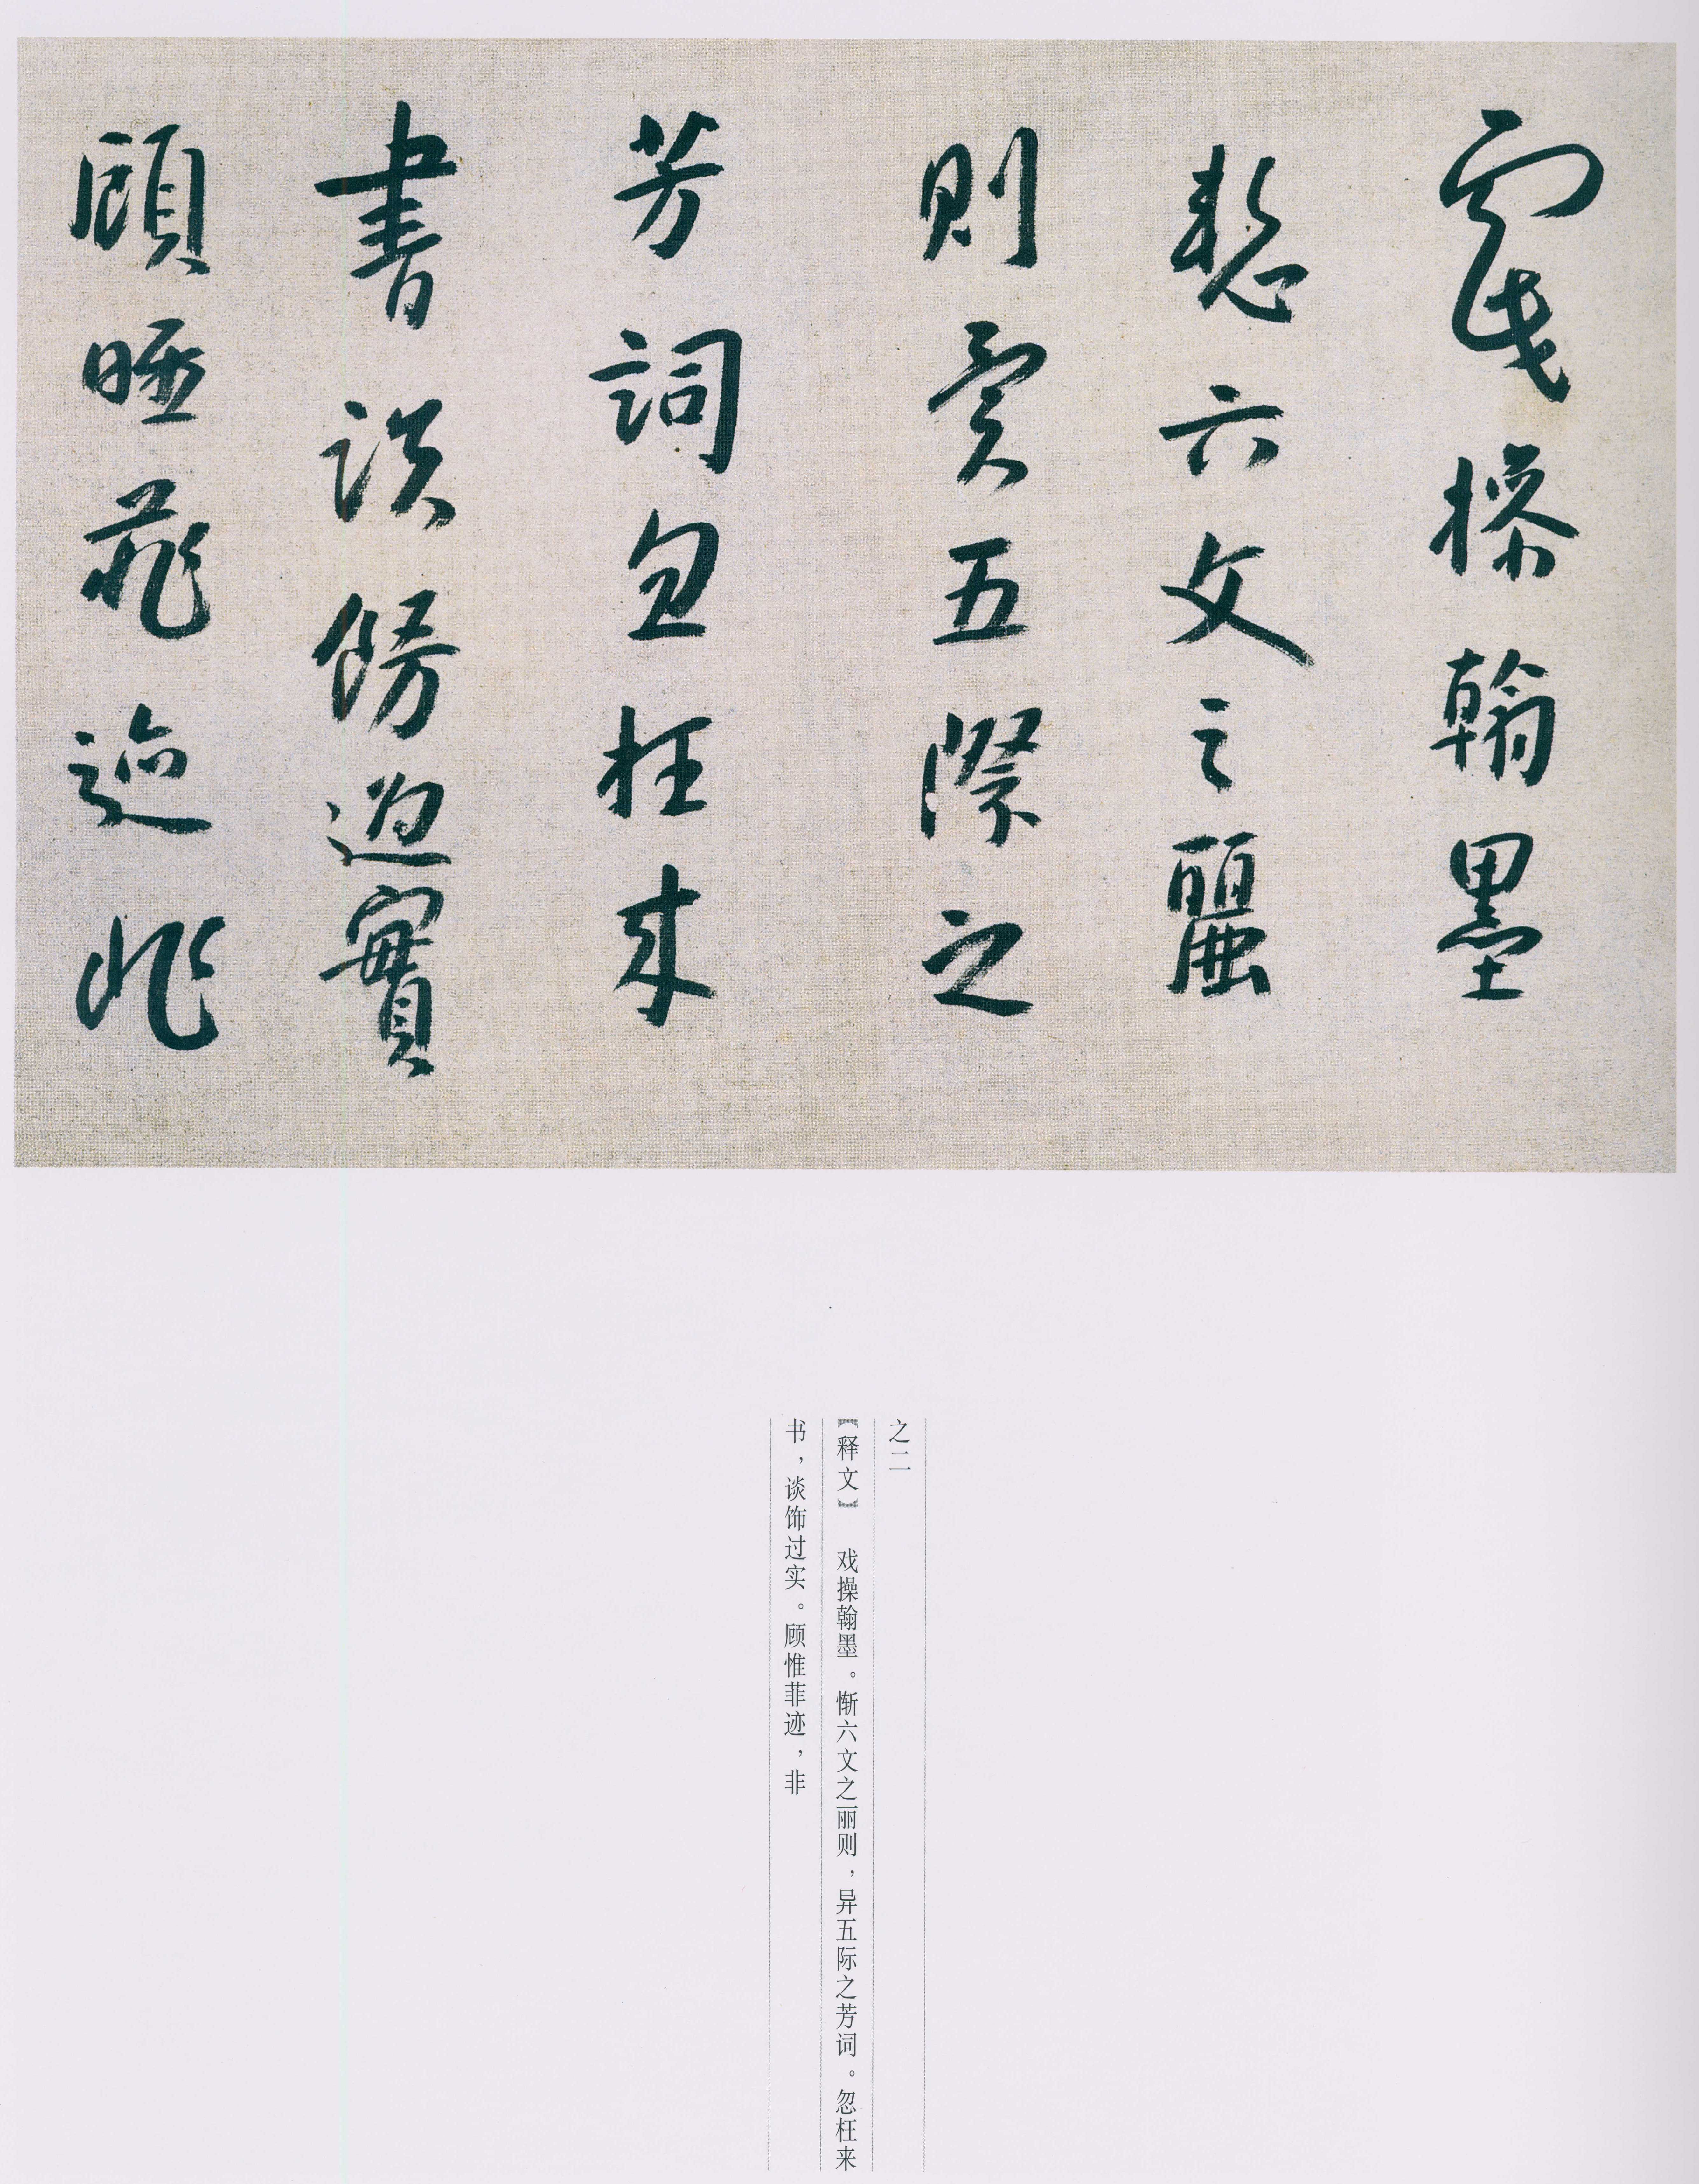 戲操翰墨
慙六文之麗
則異五際之
芳詞忽枉来
書談餝過實
顧唯菲迹非
之二
【释文】 戏操翰墨。惭六文之丽则，异五际之芳词。忽枉来
书，谈饰过实。顾惟菲迹，非